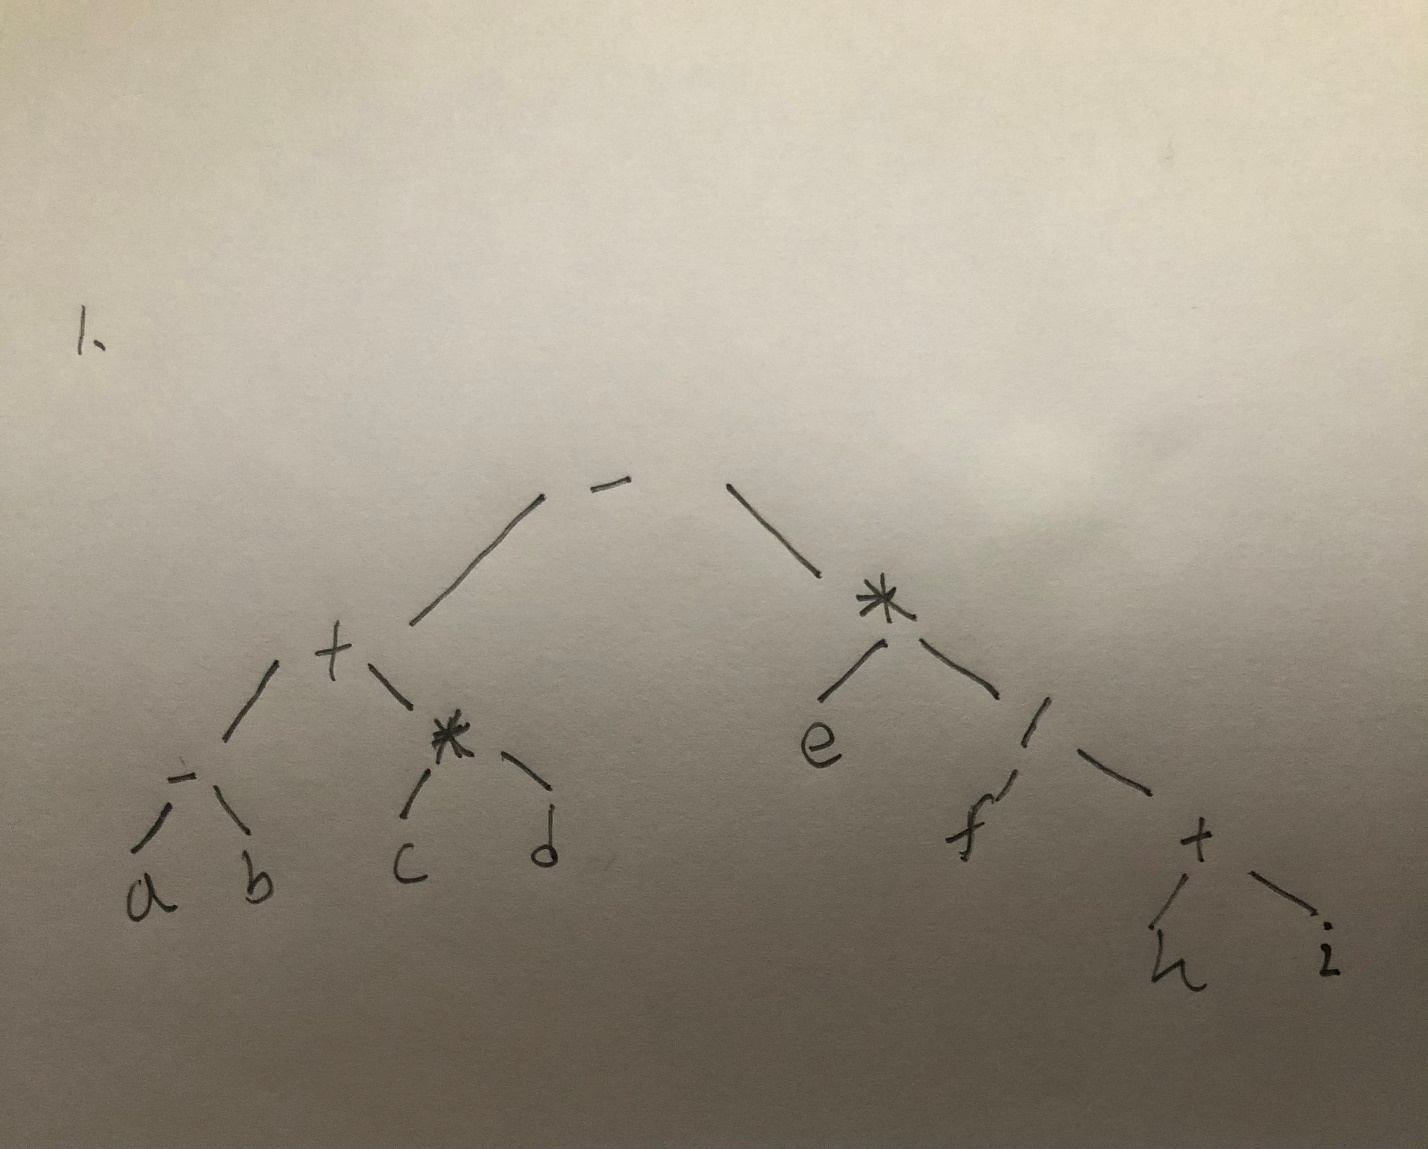 1.
-
+ *
- * e /
a b c d f +
h i